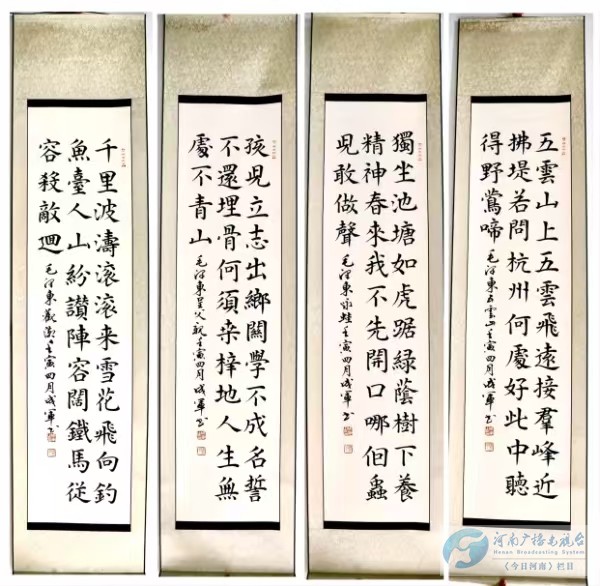 五雲山上五雲飛遠接羣峰近
拂堤若問杭州何處好此中聽
得野鶯啼 毛澤東五雲山壬寅四月成軍書
獨坐池塘如虎踞緑蔭樹下養
精神春來我不先開口哪個蟲
兒敢做聲 毛澤東咏蛙壬寅四月成軍書
孩兒立志出鄉關學不成名誓
不還埋骨何須桑梓地人生無
處不青山 毛澤東呈父親壬寅四月成軍書
千里波濤滚滚来雪花飛向釣
魚臺人山紛讚陣容闊鐵馬從
容殺敵迴 毛澤東觀潮壬寅四月成軍書
河南广播电视台
Henan Broadcasting System
《今日河南》栏目